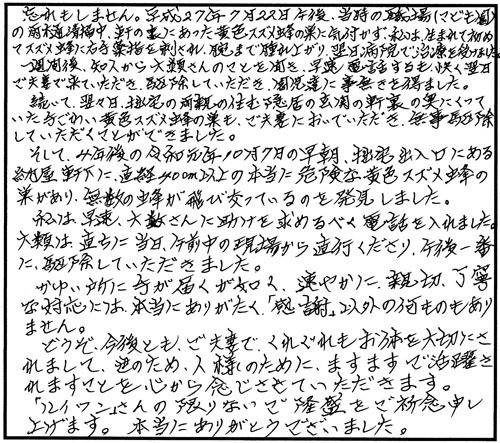 忘れもしません。平成27年7月22日午後、当時の職場(こども園)
の雨樋清掃中、軒の裏にあった黄色スズメ蜂の巣に気付かず、私は、生まれて初め
てスズメ蜂に右手薬指を刺され、腕まで腫れ上がり、翌日病院で治療を受けました。
一週間後、知人から大類さんのことを聞き、早速電話するも、快く翌日
ご夫妻で来ていただき、駆除していただき、園児達に事無きを得ました。
続いて、翌々日、拙宅の両親の住む隠居の玄関の軒裏の巣にくってい
たおどろおどろしい黄色スズメ蜂の巣も、ご夫妻においでいただき、無事駆除
していただくことができました。
そして、4年後の令和元年10月7日の早朝、拙宅出入口にある
納屋軒下に、直径40cm以上の本当に危険な黄色スズメ蜂の
巣があり、無数の蜂が飛び交っているのを発見しました。
私は、早速、大類さんに助けを求めるべく電話を入れました。
大類は、直ちに当日、午前中の現場から直行くださり、午後一番
に、駆除していただきました。
かゆい所に手が届くが如く、速やかに、親切、丁寧
な対応には、本当にありがたく、「感謝」以外の何ものもあり
ません。
どうぞ、今後とも、ご夫妻で、くれぐれもお体を大切にさ
れまして、世のため、人様のために、ますますご活躍さ
れますことを心から念じさせていただきます。
「ハイワン」さんの限りないご隆盛をご祈念申し
上げます。本当にありがとうございました。